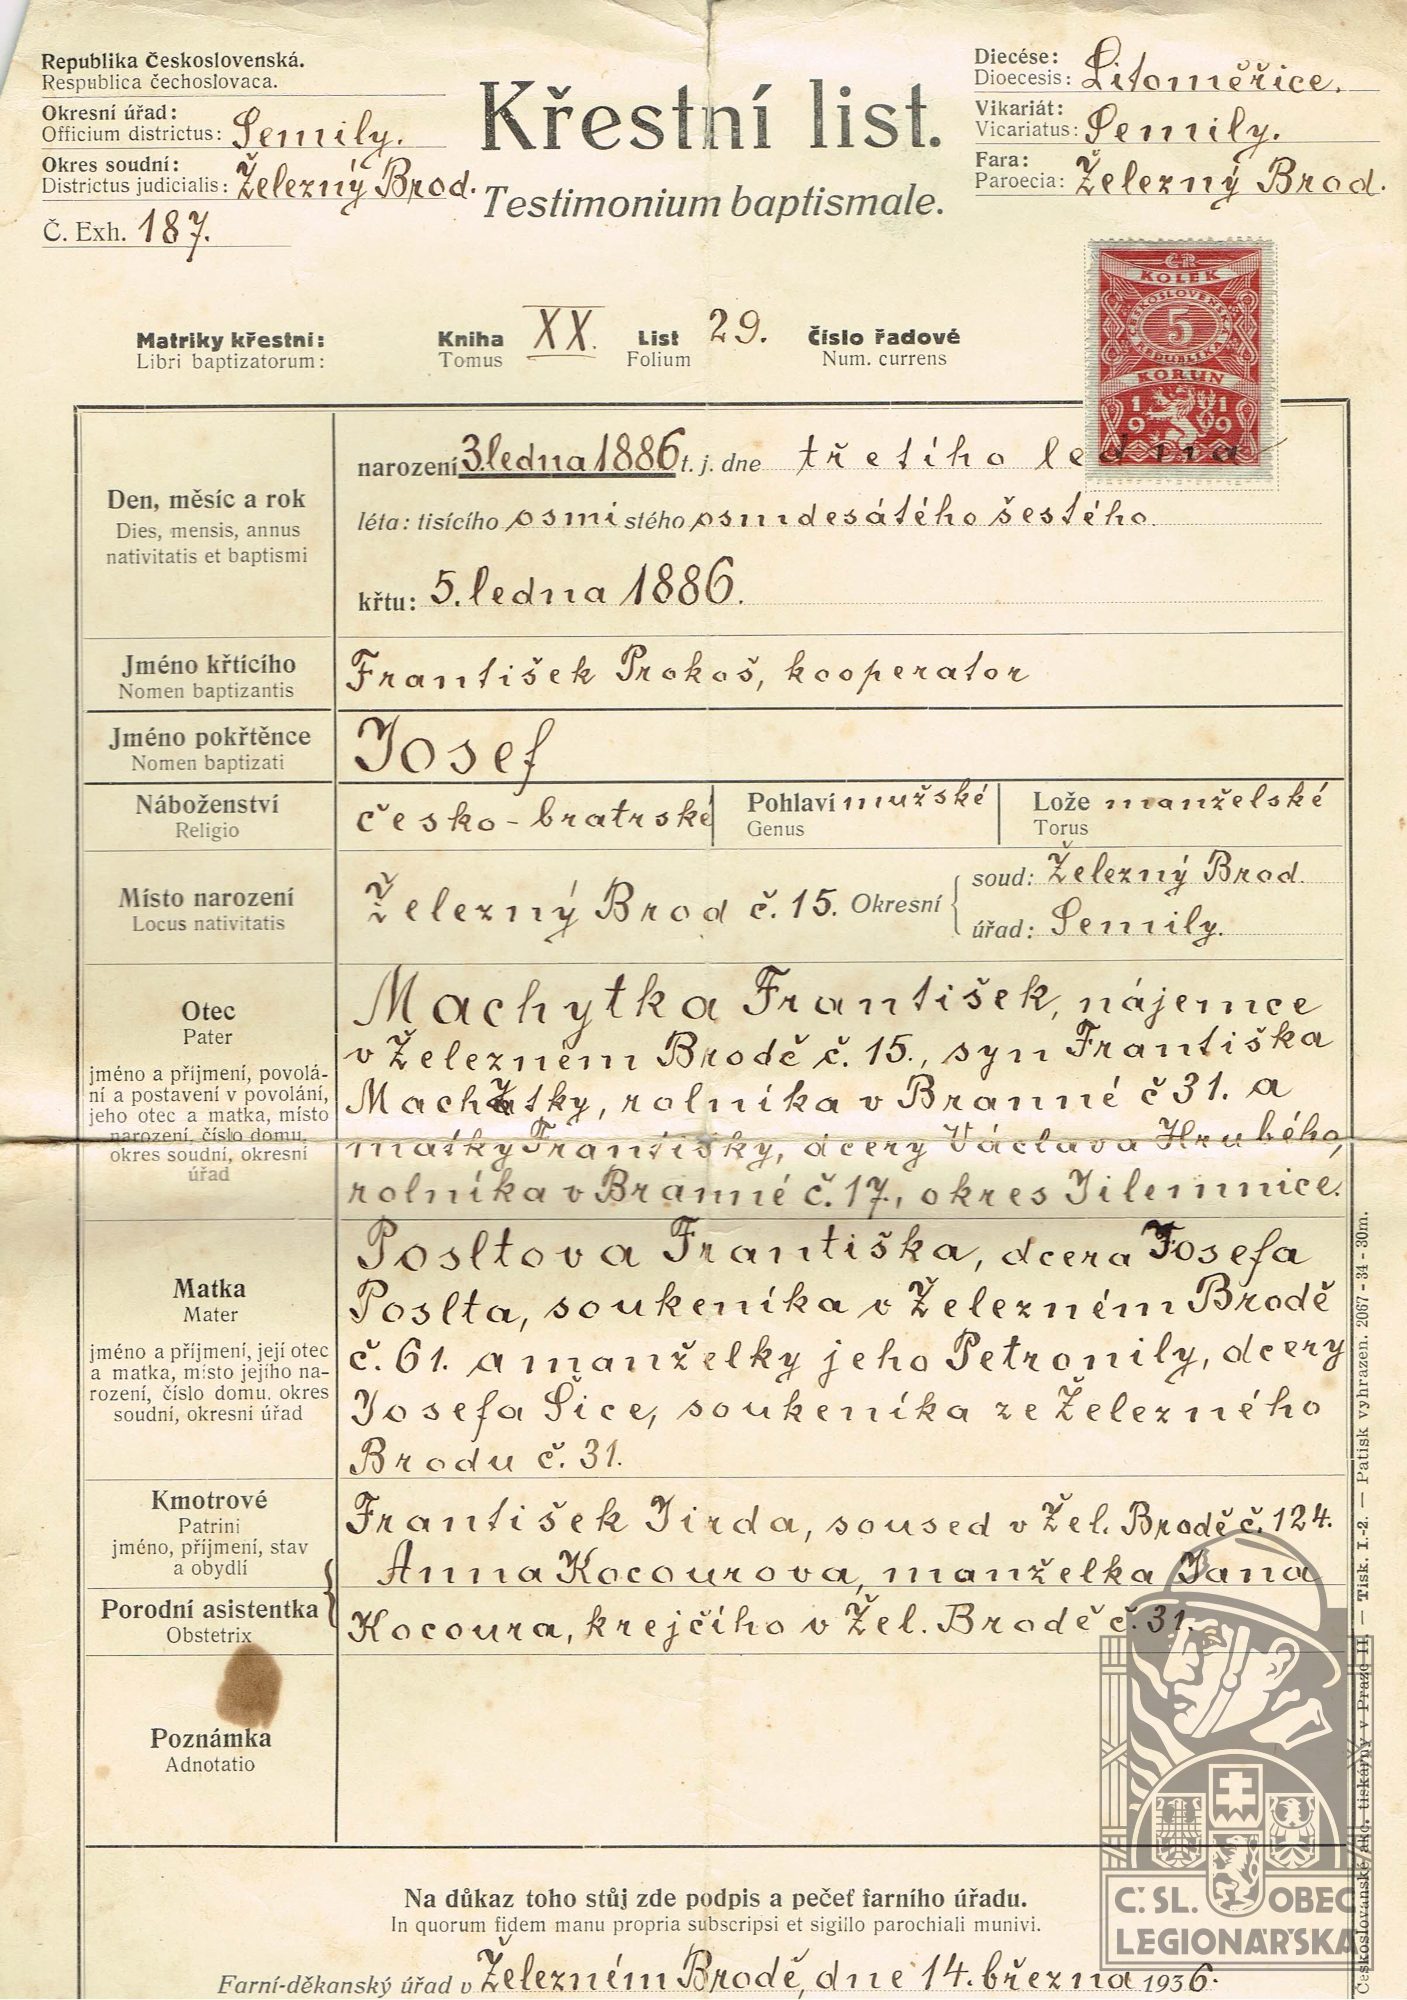 Republika Československá.
Respublica čechoslovaca.
Okresní úřad:
Officium districtus: Semily.
Okres soudní:
Districtus judicialis: Železný Brod.
Č. Exh. 187.
Křestní list.
Testimonium baptismale.
Diecése:
Dioecesis: Litoměřice.
Vikariát:
Vicariatus: Semily.
Fara:
Paroecia: Železný Brod.
ČR
KOLEK
ČESKOSLOVENSKÁ
5
REPUBLIKA
KORUN
1919
Matriky křestní: Kniha XX. List 29. Číslo řadové
Libri baptizatorum: Tomus Folium Num. currens
Den, měsíc a rok
Dies, mensis, annus
nativitatis et baptismi
narození 3. ledna 1886 t. j. dne třetího ledna
léta: tisícího osmi stého osmdesátého šestého
křtu: 5. ledna 1886.
Jméno křtícího
Nomen baptizantis
František Prokoš, kooperator
Jméno pokřtěnce
Nomen baptizati
Josef
Náboženství
Religio
česko-bratrské
Pohlaví mužské
Genus
Lože manželské
Torus
Místo narození
Locus nativitatis
Železný Brod č. 15. Okresní
soud: Železný Brod.
úřad: Semily.
Otec
Pater
jméno a příjmení, povolá-
ní a postavení v povolání,
jeho otec a matka, místo
narození, číslo domu,
okres soudní, okresní
úřad
Machytka František, nájemce
v Železném Brodě č. 15., syn Františka
Machytky, rolníka v Branné č 31. a
matky Františky, dcery Václava Hrubého,
rolníka v Branné č. 17., okres Jilemnice.
Matka
Mater
jméno a příjmení, její otec
a matka, místo jejího na-
rození, číslo domu, okres
soudní, okresní úřad
Posltova Františka, dcera Josefa
Poslta, soukeníka v Železném Brodě
č. 61. a manželky jeho Petronily, dcery
Josefa Šice, soukeníka ze Železného
Brodu č. 31.
Kmotrové
Patrini
jméno, příjmení, stav
a obydlí
František Jirda, soused v Žel. Brodě č. 124.
Anna Kocourova, manželka Jana
Porodní asistentka
Obstetrix
Kocoura, krejčího v Žel. Brodě č. 31.
Poznámka
Adnotatio
Na důkaz toho stůj zde podpis a pečeť farního úřadu.
In quorum fidem manu propria subscripsi et sigillo parochiali munivi.
Farní-děkanský úřad v Železném Brodě, dne 14. března 1936.
Českoslovanské akc. tiskárny v Praze II. — Tisk. I.-2. — Patisk vyhrazen. 2067 - 34 - 30m.
Č SL. OBEC
LEGIONÁŘSKÁ